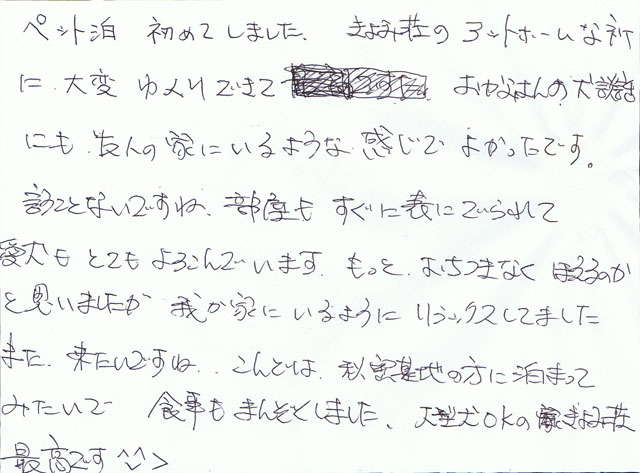 ペット泊 初めてしました. きよみ荘の アットホームな所
に 大変 ゆくりできて おかあさんの犬談義
にも 友人の家にいるような 感じで よかったです。
言うことないですね、部屋も すぐに表にでられて
愛犬も とても よろこんでいます. もっと おちつきなく ほえるのか
と思いましたが 我が家に いるように リラックスしてました
また. 来たいですね.. こんどは. 秘密基地の方に泊まって
みたいで 食事も まんぞくしました、大型犬OKの きよみ荘
最高です ^^>